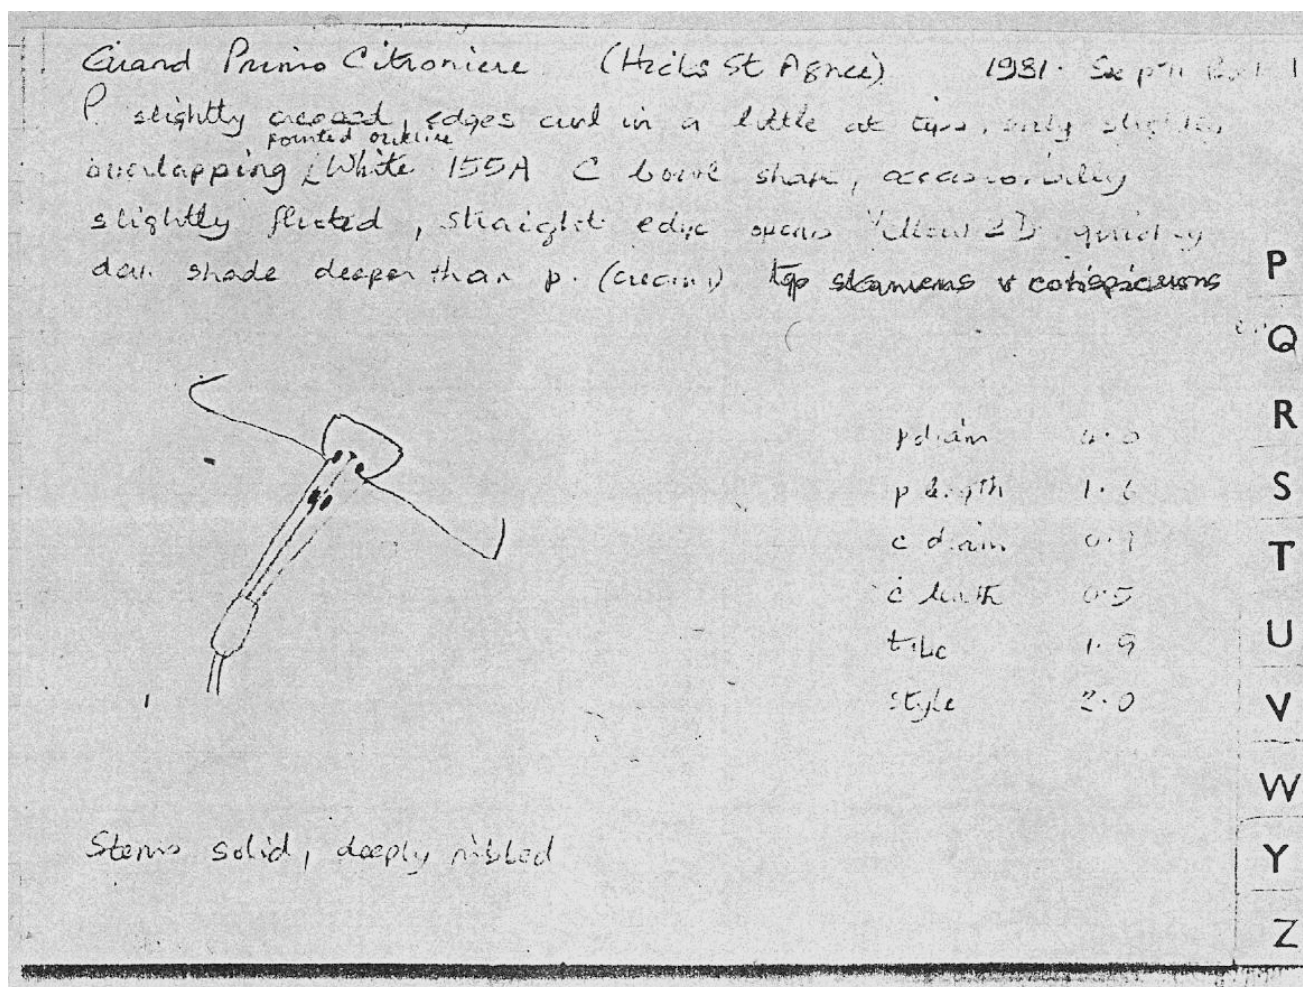 Grand Primo Citroniere (Hicks St Agnes) 1981.
P slightly creased, edges curl in a little at tips, only slightly
pointed outline
overlapping, White 155A C bowl shape, occasionally
slightly fluted, straight edge opens Yellow 2D quickly
shade deeper than p. (cream) top stamens v conspicuous
p diam 4.0
p length 1.6
c diam 0.9
c length 0.5
tube 1.9
style 2.0
Stems solid, deeply ribbed
P
Q
R
S
T
U
V
W
Y
Z